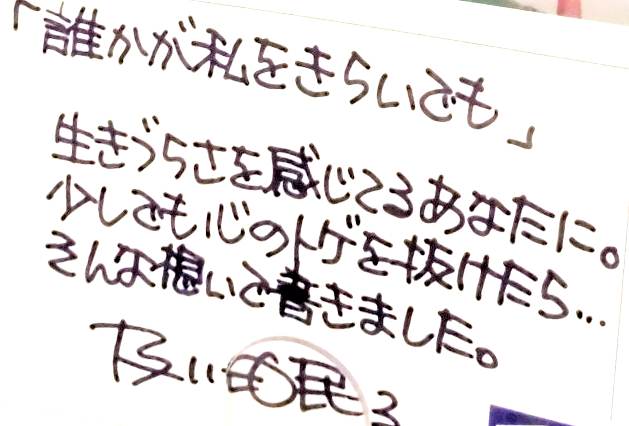 「誰かが私をきらいでも」
生きづらさを感じてるあなたに。
少しでも心のトゲを抜けたら…
そんな想いで書きました。